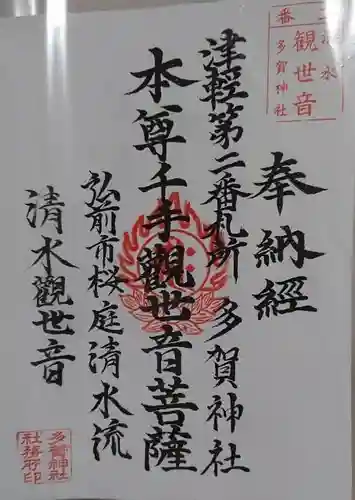 二番
清水
観世音
多賀神社
奉納經
津輕第二番札所 多賀神社
本尊千手觀世音菩薩
弘前市桜庭清水流
清水觀世音
多賀神社
社務所印